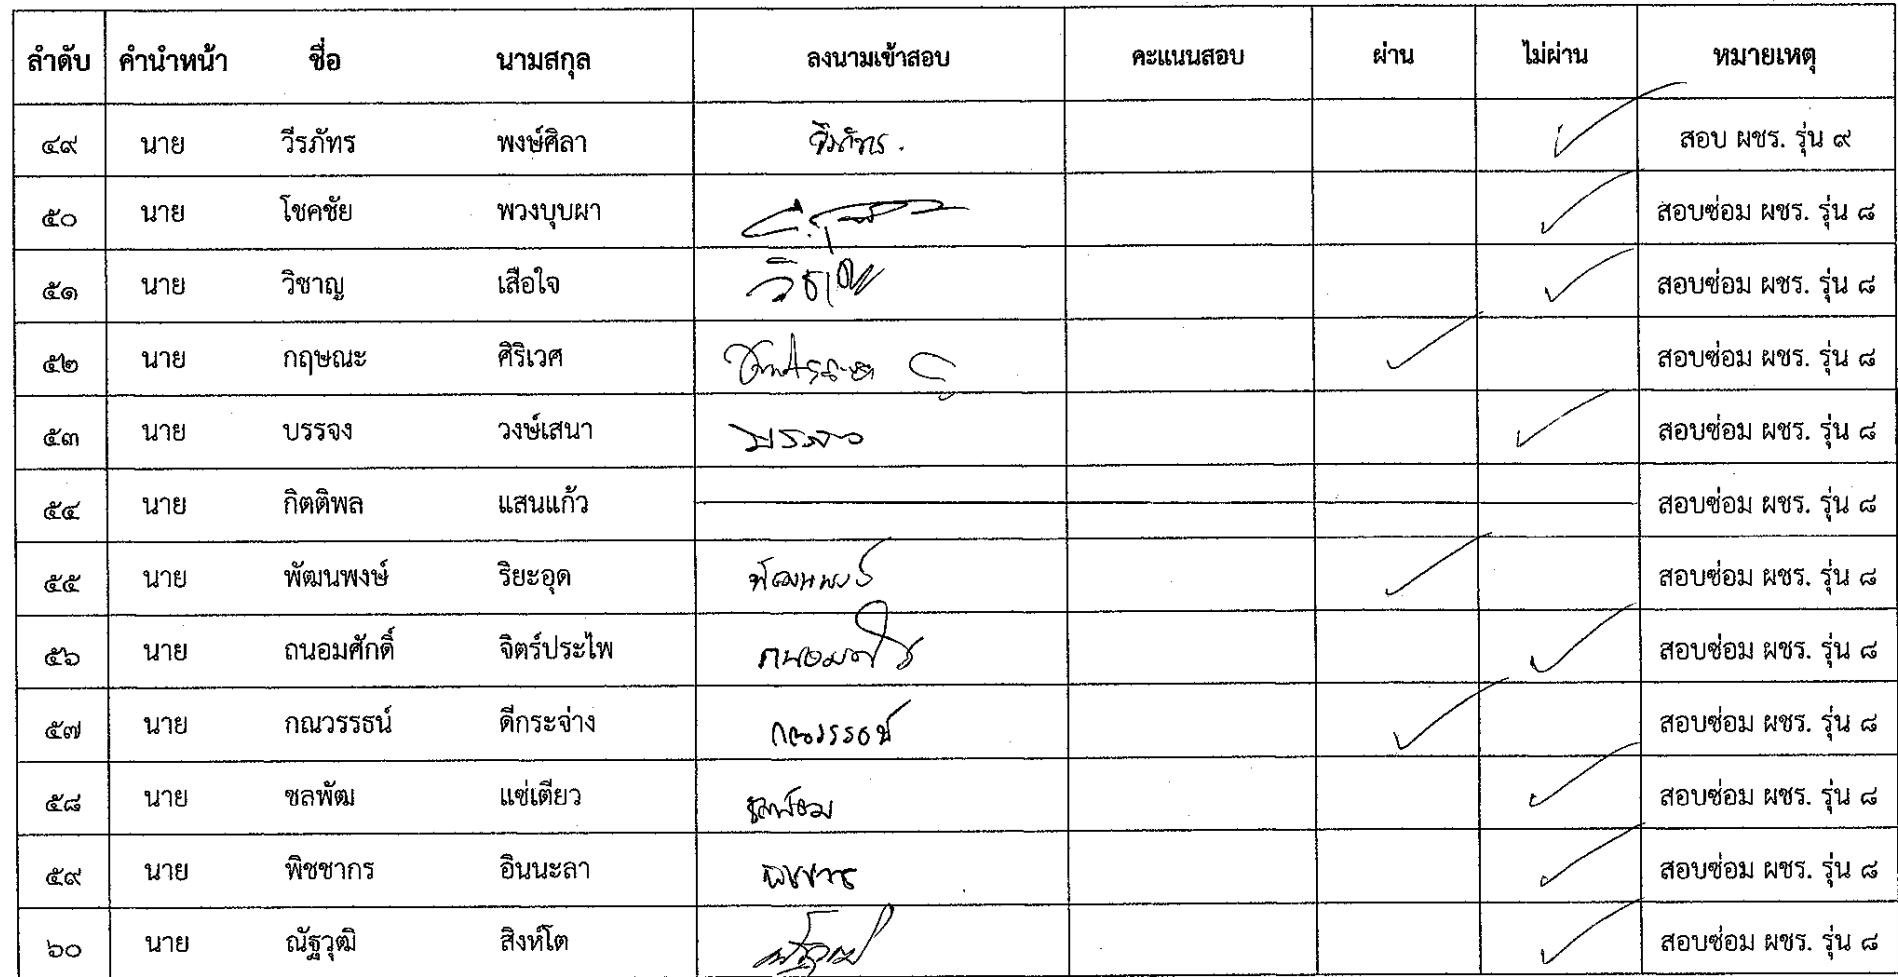 ลำดับ คำนำหน้า ชื่อ นามสกุล ลงนามเข้าสอบ คะแนนสอบ ผ่าน ไม่ผ่าน หมายเหตุ
๔๙ นาย วีรภัทร พงษ์ศิลา วีรภัทร. ✓ สอบ ผชร. รุ่น ๙
๕๐ นาย โชคชัย พวงบุบผา ✓ สอบซ่อม ผชร. รุ่น ๘
๕๑ นาย วิชาญ เสือใจ วิชาญ ✓ สอบซ่อม ผชร. รุ่น ๘
๕๒ นาย กฤษณะ ศิริเวศ ✓ สอบซ่อม ผชร. รุ่น ๘
๕๓ นาย บรรจง วงษ์เสนา บรรจง ✓ สอบซ่อม ผชร. รุ่น ๘
๕๔ นาย กิตติพล แสนแก้ว สอบซ่อม ผชร. รุ่น ๘
๕๕ นาย พัฒนพงษ์ ริยะอุด พัฒนพงษ์ ✓ สอบซ่อม ผชร. รุ่น ๘
๕๖ นาย ถนอมศักดิ์ จิตร์ประไพ ✓ สอบซ่อม ผชร. รุ่น ๘
๕๗ นาย กณวรรธน์ ดีกระจ่าง กณวรรธน์ ✓ สอบซ่อม ผชร. รุ่น ๘
๕๘ นาย ชลพัฒ แซ่เตียว ✓ สอบซ่อม ผชร. รุ่น ๘
๕๙ นาย พิชชากร อินนะลา ✓ สอบซ่อม ผชร. รุ่น ๘
๖๐ นาย ณัฐวุฒิ สิงห์โต ✓ สอบซ่อม ผชร. รุ่น ๘